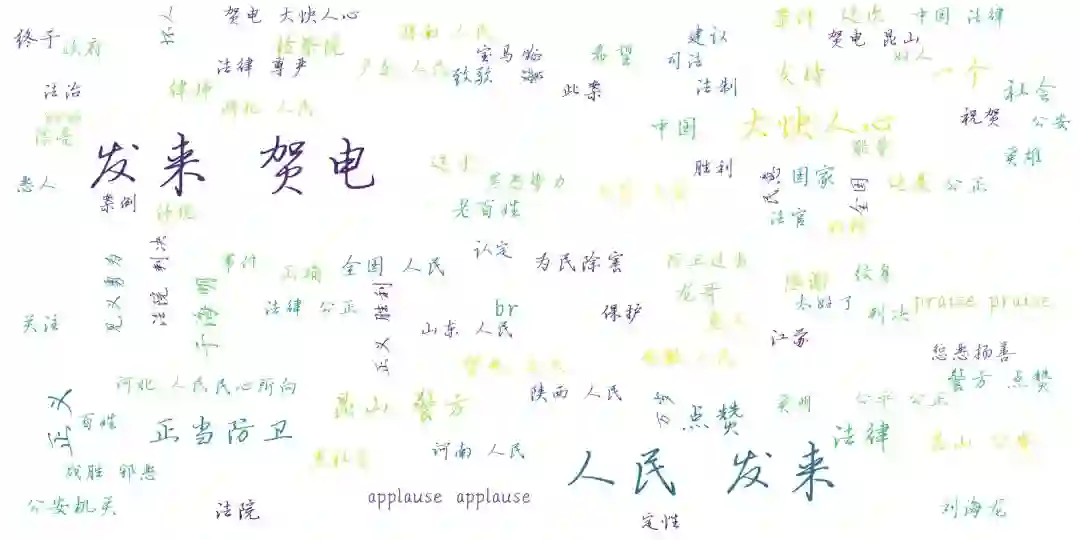 终于
政府
坏人
贺电 大快人心
检察院
湖南 人民
宝马
建议
司法
希望
案件
这次
中国 法律
贺电 昆山
法律 尊严
广东 人民
致敬
此案
法制
支持
一个
社会
法治
律师
湖北 人民
中国
大快人心
祝贺
公安
英雄
发来 贺电
恶人
案例
老百姓
黑恶势力
胜利
国家
全国
公正
法官
见义勇为
法院 判决
于海明
事件
全国 人民
认定
为民除害
防卫过当
龙哥
感谢
太好了
法律 公正
正义 胜利
br
保护
判决
praise praise
关注
山东 人民
江苏
惩恶扬善
河北 人民
民心所向
安徽 人民
陕西 人民
警方 点赞
正义
百姓
正当防卫
昆山 警方
点赞
贵州
公平 公正
法律
昆山 公安
战胜 邪恶
黑社会
河南 人民
人民 发来
公安机关
法院
applause applause
定性
刘海龙